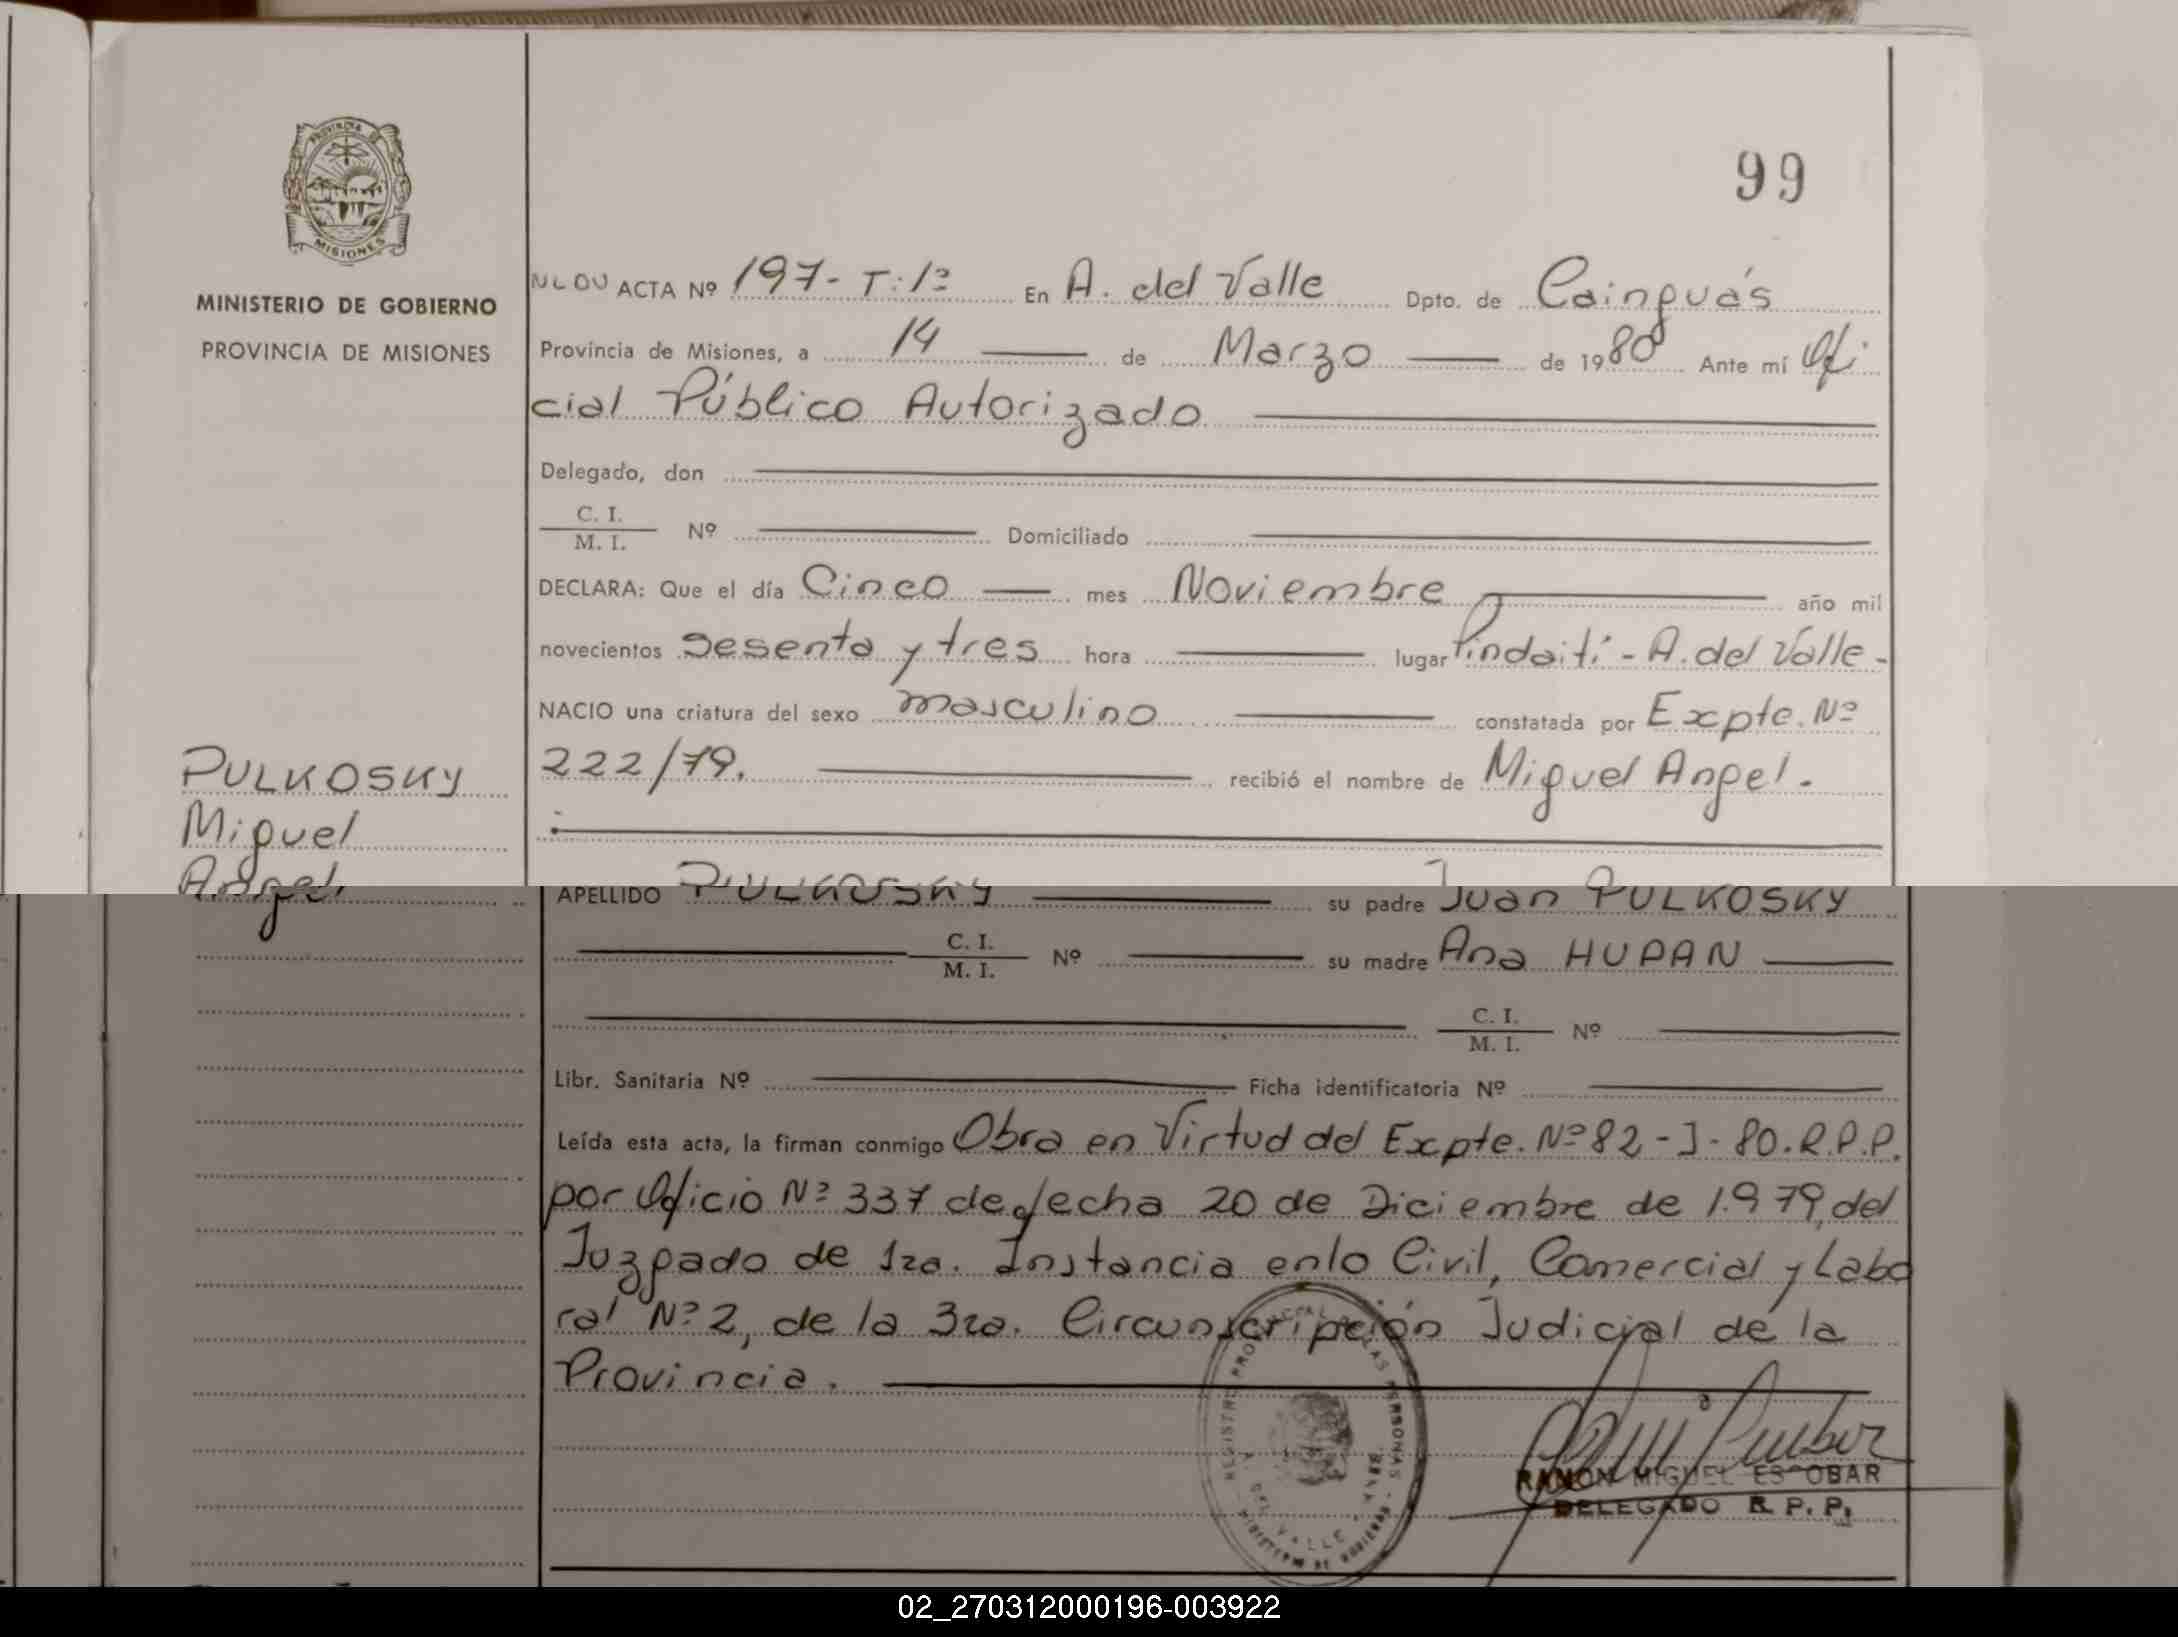 99
PROVINCIA DE
MISIONES
MINISTERIO DE GOBIERNO
PROVINCIA DE MISIONES
ACTA Nº 197- T: 1º En A. del Valle Dpto. de Cainguás
Provincia de Misiones, a 14 de Marzo de 1980 Ante mí Ofi
cial Público Autorizado
Delegado, don
C. I.
M. I. Nº Domiciliado
DECLARA: Que el día Cinco mes Noviembre año mil
novecientos sesenta y tres hora lugar Pindaití - A. del Valle -
NACIO una criatura del sexo masculino constatada por Expte. Nº
222/79. recibió el nombre de Miguel Angel.
PULKOSKY
Miguel
Angel
APELLIDO PULKOSKY su padre Juan PULKOSKY
C. I.
M. I. Nº su madre Ana HUPAN
C. I.
M. I. Nº
Libr. Sanitaria Nº Ficha identificatoria Nº
Leída esta acta, la firman conmigo Obra en Virtud del Expte. Nº 82 - J - 80. R.P.P.
por Oficio Nº 337 de fecha 20 de Diciembre de 1.979, del
Juzgado de 1ra. Instancia en lo Civil, Comercial y Labo
ral Nº 2, de la 3ra. Circunscripción Judicial de la
Provincia.
REGISTRO PROVINCIAL DE LAS PERSONAS
A. DEL VALLE
MINISTERIO DE GOBIERNO
RAMON MIGUEL ESCOBAR
DELEGADO R. P. P.
02_270312000196-003922